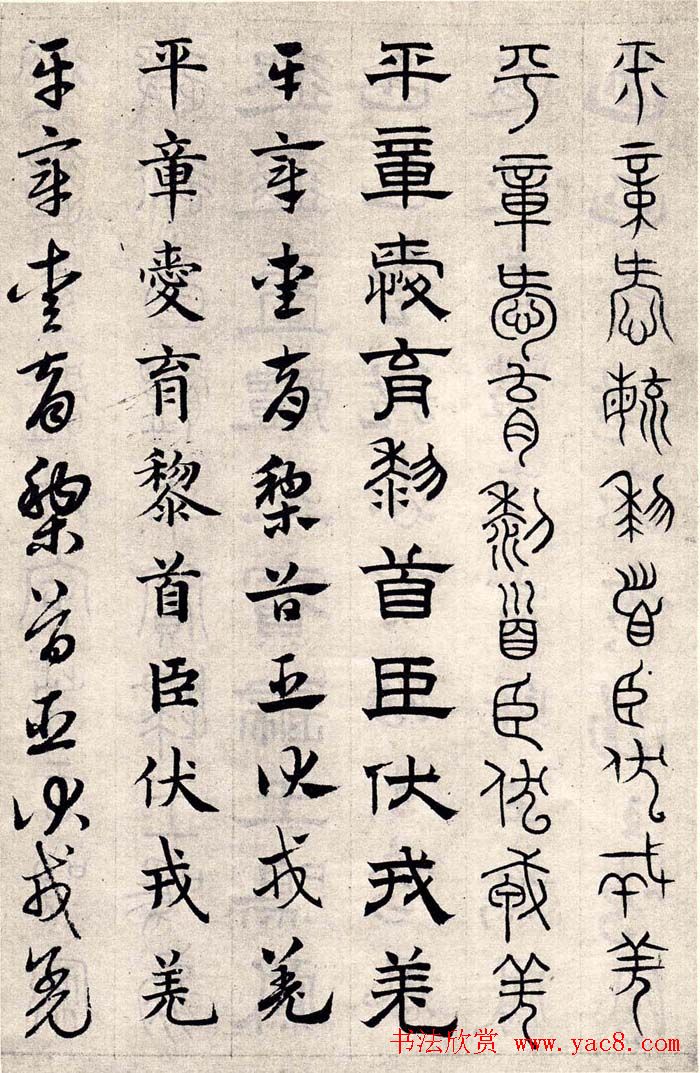 平章愛育黎首臣伏戎羌
平章愛育黎首臣伏戎羌
平章愛育黎首臣伏戎羌
平章愛育黎首臣伏戎羌
平章愛育黎首臣伏戎羌
平章愛育黎首臣伏戎羌
书法欣赏 www.yac8.com